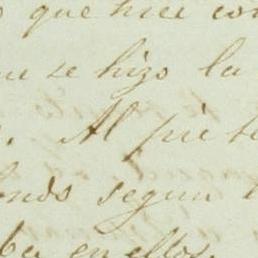 que hice con
se hizo la
Al pie
segun
en ellos.